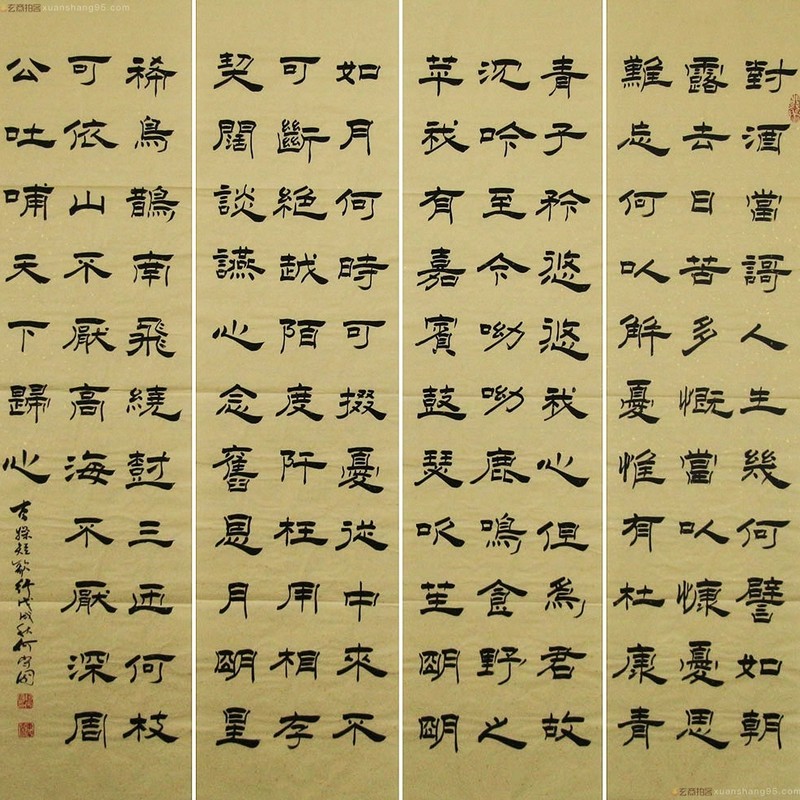 對酒當謌人生幾何譬如朝
露去日苦多慨當以慷憂思
難忘何以解憂惟有杜康青
青子衿悠悠我心但為君故
沈吟至今呦呦鹿鳴食野之
苹我有嘉賓鼓瑟吹笙明明
如月何時可掇憂從中來不
可斷絕越陌度阡枉用相存
契闊談讌心念舊恩月明星
稀鳥鵲南飛繞尌三匝何枝
可依山不厭高海不厭深周
公吐哺天下歸心
曹操短歌行戊戌秋何